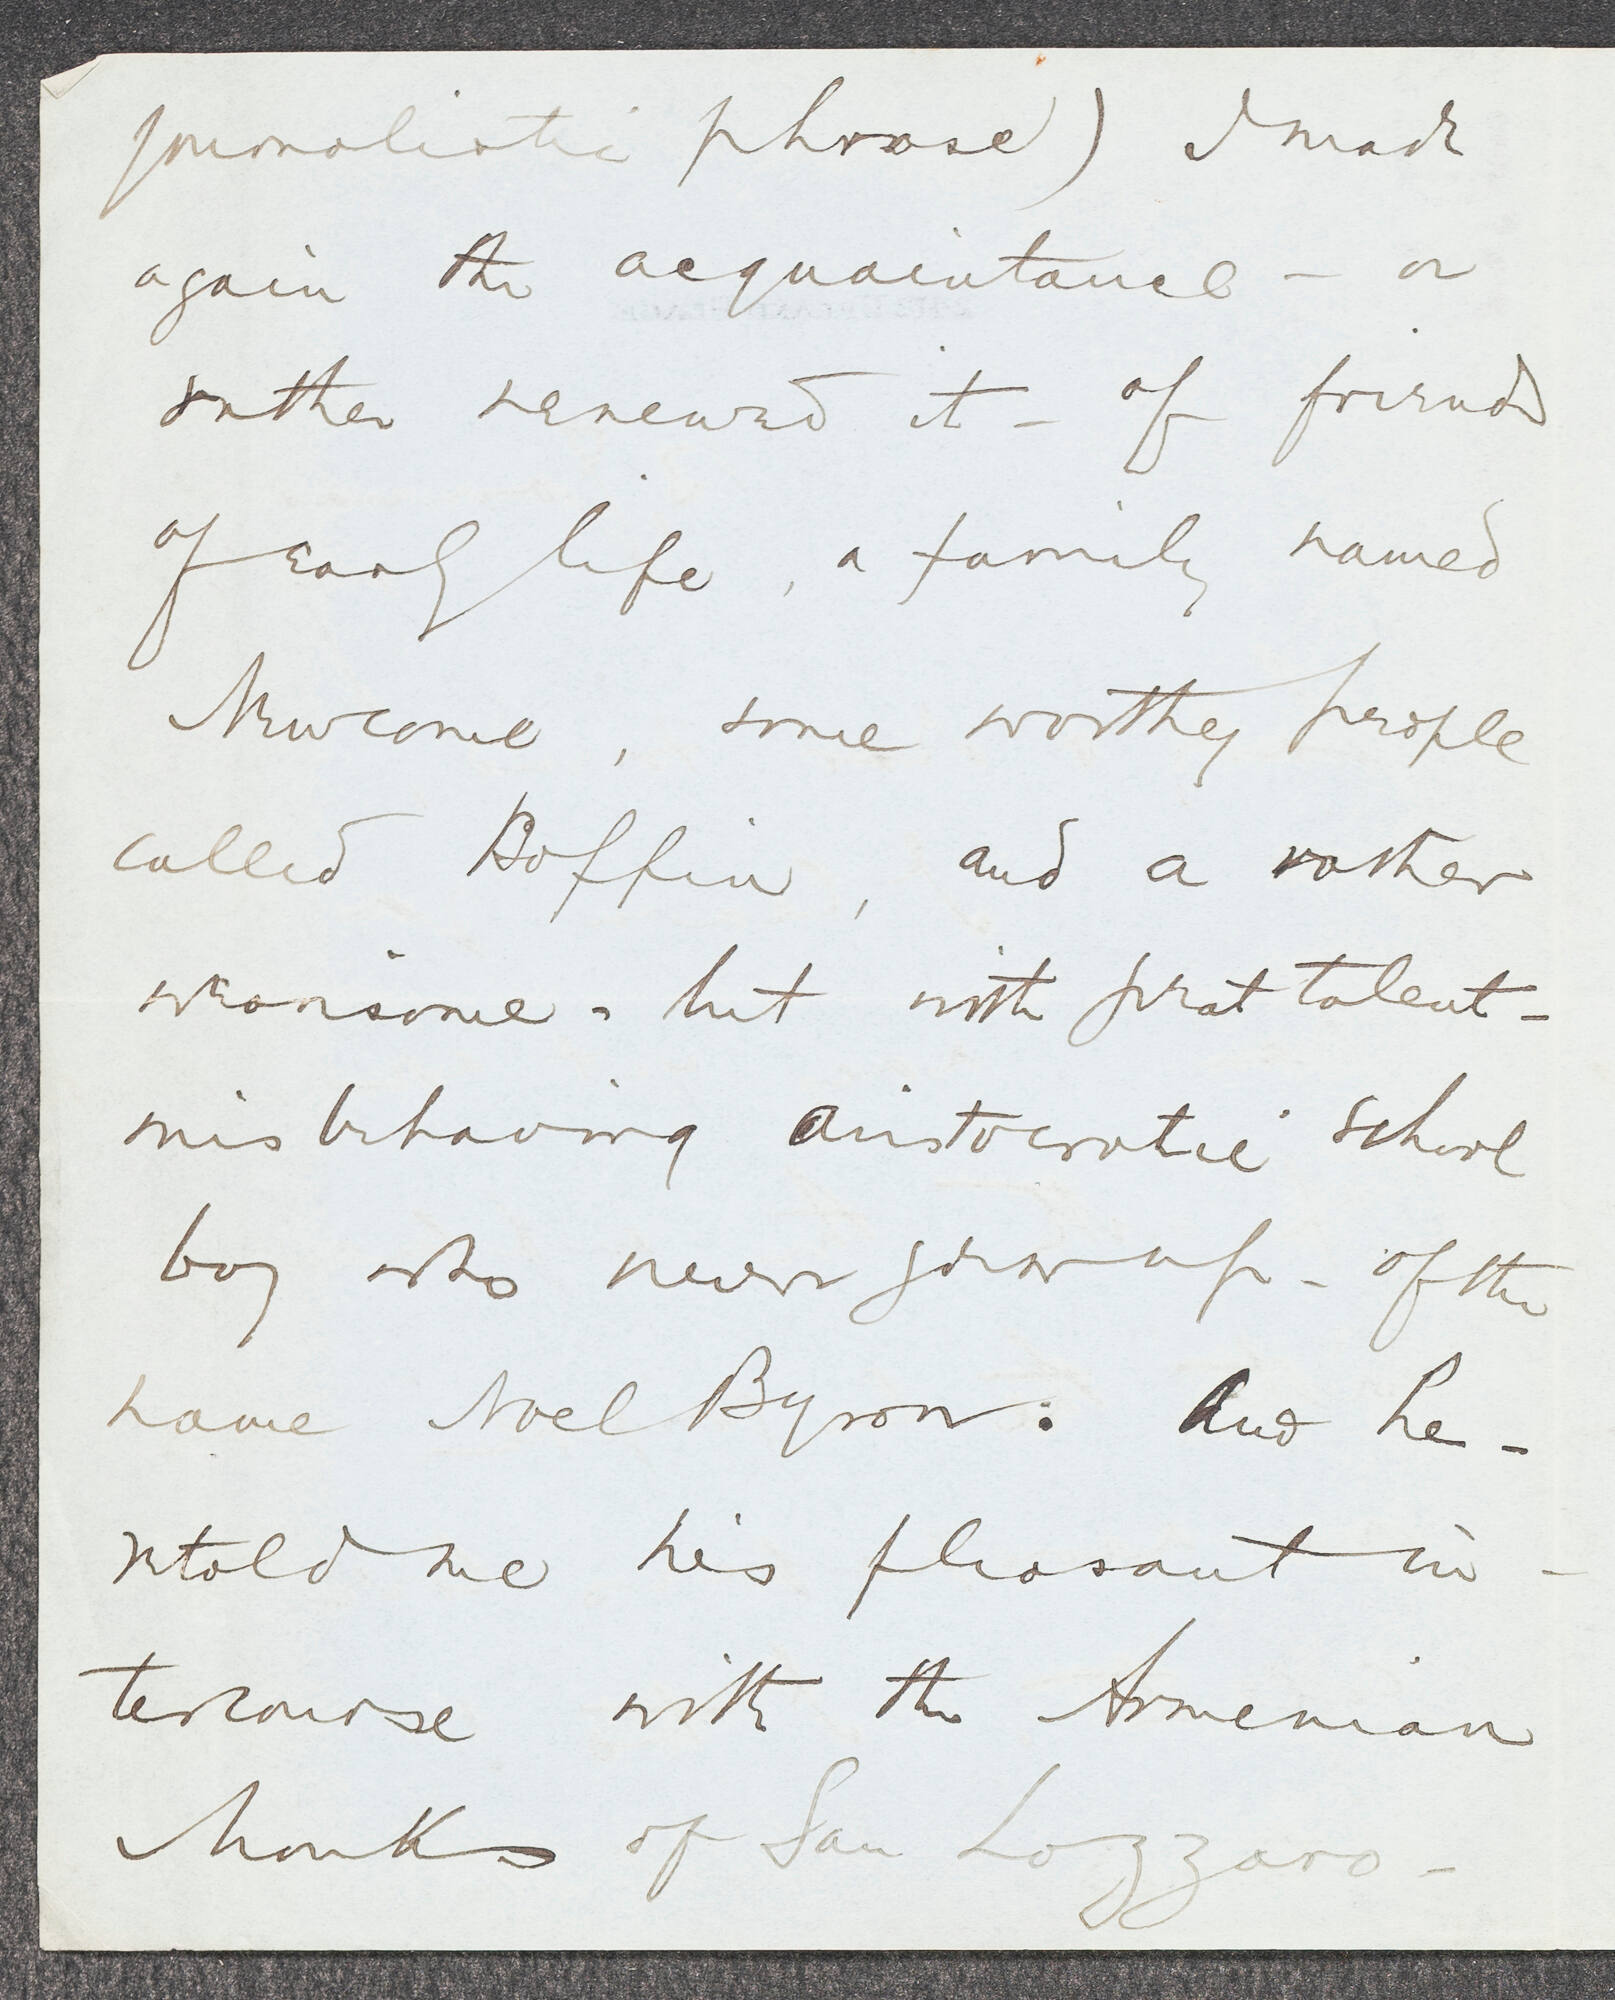 journalistic phrase) I made
again the acquaintance - or
rather renewed it - of friends
of early life, a family named
Newcome, some worthy people
called Boffin, and a rather
wearisome - but with great talent -
misbehaving aristocratic school
boy who never grew up - of the
name Noel Byron: And he -
retold me his pleasant in -
tercourse with the Armenian
Monks of San Lazzaro -